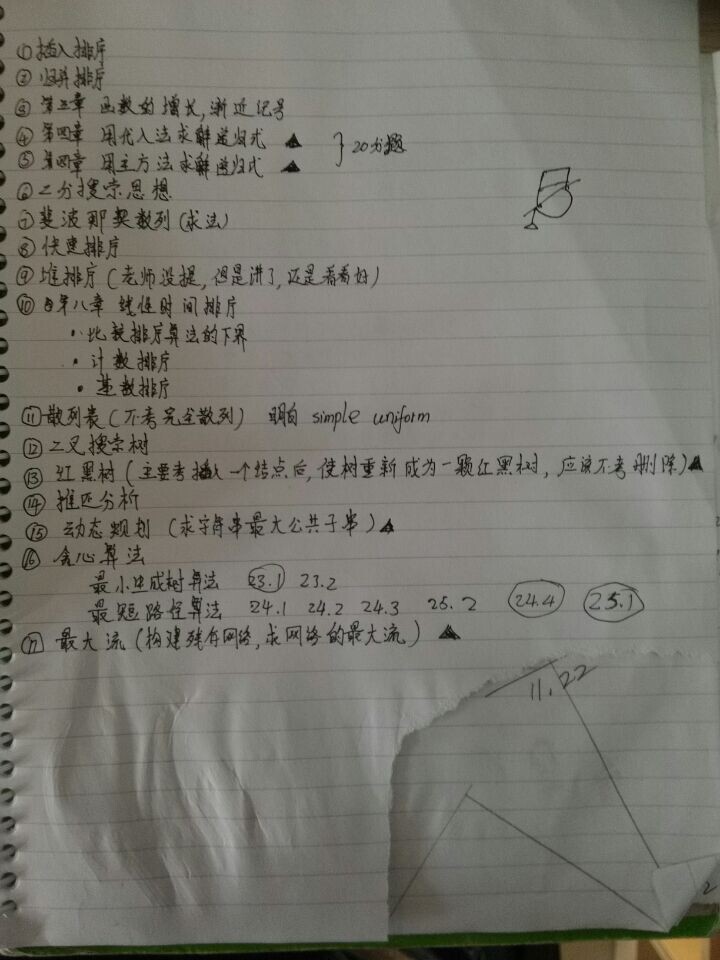 ①插入排序
②归并排序
③第三章 函数的增长,渐近记号
④第四章 用代入法求解递归式 ▲
⑤第四章 用主方法求解递归式 ▲
}20分题
⑥二分搜索思想
⑦斐波那契数列(求法)
⑧快速排序
⑨堆排序(老师没提,但是讲了,还是看看好)
⑩第八章 线性时间排序
·比较排序算法的下界
·计数排序
·基数排序
⑪散列表(不考完全散列) 明白 simple uniform
⑫二叉搜索树
⑬红黑树(主要考插入一个结点后,使树重新成为一颗红黑树,应该不考删除)▲
⑭摊还分析
⑮动态规划(求字符串最大公共子串)▲
⑯贪心算法
最小生成树算法 23.1 23.2
最短路径算法 24.1 24.2 24.3 25.2 24.4 25.1
⑰最大流(构建残存网络,求网络的最大流) ▲
11.22
2